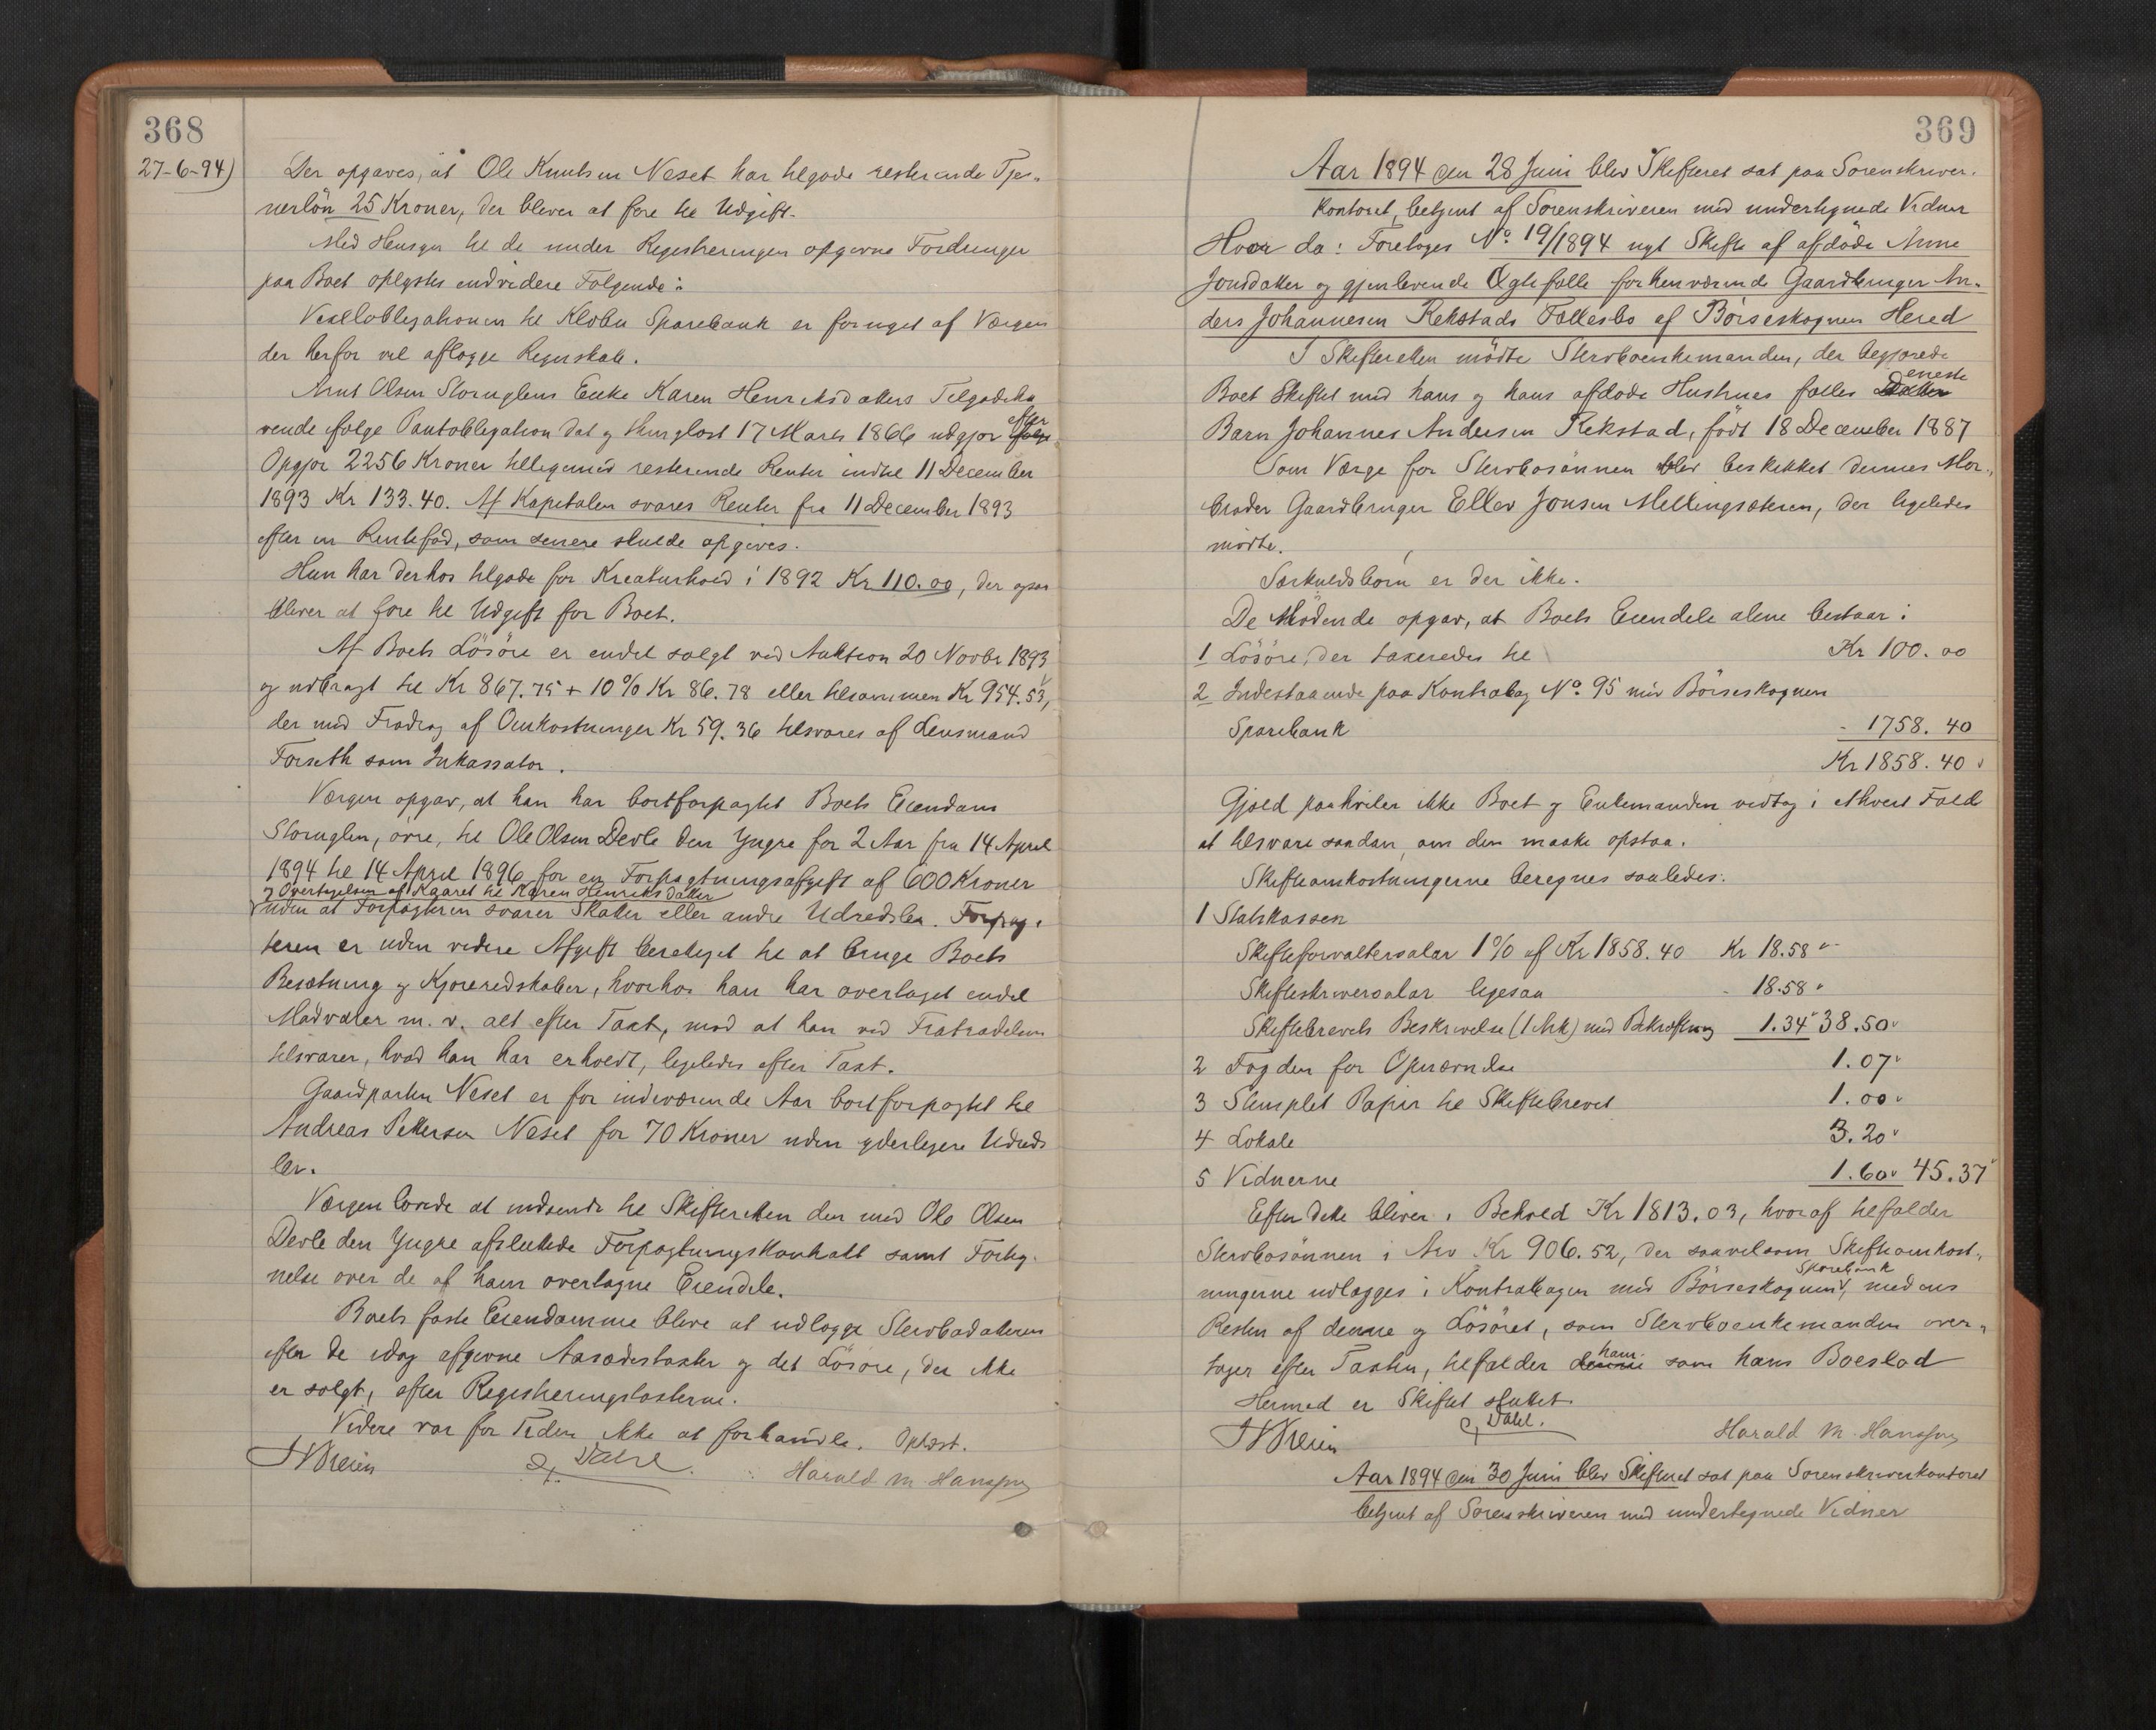 368
27-6-94)
Der opgaves, at Ole Knutsen Neset har tilgode resterende Tje-
nerlön 25 Kroner, der bliver at føre til Udgift.
Med Hensyn til de under Registreringen opgivne Fordringer
paa Boet oplystes endvidere Følgende:
Vexelobligationen til Klæbu Sparebank er fornyet af Værgen
der herfor vil aflægge Regnskab.
Arnt Olsen Storuglens Enke Karen Henriksdatters Tilgodeha
vende ifølge Pantobligation dat og thinglæst 17 Marts 1866 udgjør efter
Opgjør 2256 Kroner tilligemed resterende Renter indtil 11 December
1893 Kr 133.40. Af Kapitalen svares Renter fra 11 December 1893
efter en Rentefod, som senere skulde opgives.
Hun har derhos tilgode for Kreaturhold i 1892 Kr. 110.00, der ogsaa
bliver at føre til Udgift for Boet.
Af Boets Lösöre er endel solgt ved Auktion 20 Novbr 1893
og udbragt til Kr 867.75 + 10% Kr 86.78 eller tilsammen Kr 954.53,
der med Fradrag af Omkostninger Kr 59.36 tilsvares af Lensmand
Forseth som Inkassator.
Værgen opgav, at han har bortforpagtet Boets Eiendom
Storuglen, övre, til Ole Olsen Devle den Yngre for 2 Aar fra 14 April
1894 til 14 April 1896 for en Forpagtningsafgift af 600 Kroner
og Overtagelsen af Kaaret til Karen Henriksdatter
uden at Forpagteren svarer Skatter eller andre Udredsler. Forpag-
teren er uden videre Afgift berettiget til at bruge Boets
Besætning og Kjøreredskaber, hvorhos han har overtaget endel
Madvarer m. v. alt efter Taxt, mod at han ved Fratrædelsen
tilsvarer, hvad han har erholdt, ligeledes efter Taxt.
Gaardparten Neset er for indeværende Aar bortforpagtet til
Andreas Pettersen Neset for 70 Kroner uden yderligere Udreds
ler.
Værgen lovede at indsende til Skifteretten den med Ole Olsen
Devle den Yngre afsluttede Forpagtningskontrakt samt Forteg-
nelse over de af ham overtagne Eiendele.
Boets faste Eiendomme blive at udlægge Stervbodatteren
efter de idag afgivne Aasædestaxter og det Lösöre, der ikke
er solgt, efter Registreringstaxterne.
Videre var for Tiden ikke at forhandle. Oplæst.
Dahl. Harald M. Hansen
369
Aar 1894 den 28 Juni blev Skifteret sat paa Sorenskriver-
kontoret, betjent af Sorenskriveren med undertegnede Vidner
Hvor da: Foretoges No. 19/1894 nyt Skifte af afdöde Anne
Jonsdatter og gjenlevende Ægtefælle forhenværende Gaardbruger An-
ders Johannesen Rekstads Fællesbo af Börseskognen Hered
I Skifteretten mödte Stervboenkemanden, der begjærede
Boet skiftet med hans og hans afdøde Hustrues fælles eneste
Barn Johannes Andersen Rekstad, födt 18 December 1887
Som Værge for Stervbosönnen blev beskikket dennes Mor-
broder Gaardbruger Ellev Jonsen Mellingsæteren, der ligeledes
mödte.
Særkuldsbörn er der ikke.
De Mödende opgav, at Boets Eiendele alene bestaar i:
1 Lösöre, der taxeredes til Kr 100.00
2 Indestaaende paa Kontrabog No. 95 med Börseskognen
Sparebank - 1758.40
Kr 1858.40
Gjæld paahviler ikke Boet og Enkemanden vedtog i ethvert Fald
at tilsvare saadan, om den maatte opstaa.
Skifteomkostningerne beregnes saaledes:
1 Statskassen
Skifteforvaltersalær 1% af Kr 1858.40 Kr 18.58
Skifteskriversalær ligesaa - 18.58
Skiftebrevets Beskrivelse (1 Ark) med Bekræftning 1.34 38.50
2 Fogden for Opnævnelse 1.07
3 Stemplet Papir til Skiftebrevet 1.00
4 Lokale 3.20
5 Vidnerne 1.60 45.37
Efter dette bliver i Behold Kr 1813.03, hvoraf tilfalder
Stervbosönnen i Arv Kr 906.52, der saavelsom Skifteomkost-
ningerne udlægges i Kontrabogen med Börseskognens Sparebank, medens
Resten af denne og Lösöret, som Stervboenkemanden over-
tager efter Taxten, tilfalder ham som hans Boeslod
Hermed er Skiftet sluttet
Dahl. Harald M. Hansen
Aar 1894 den 30 Juni blev Skifteret sat paa Sorenskriverkontoret
betjent af Sorenskriveren med undertegnede Vidner